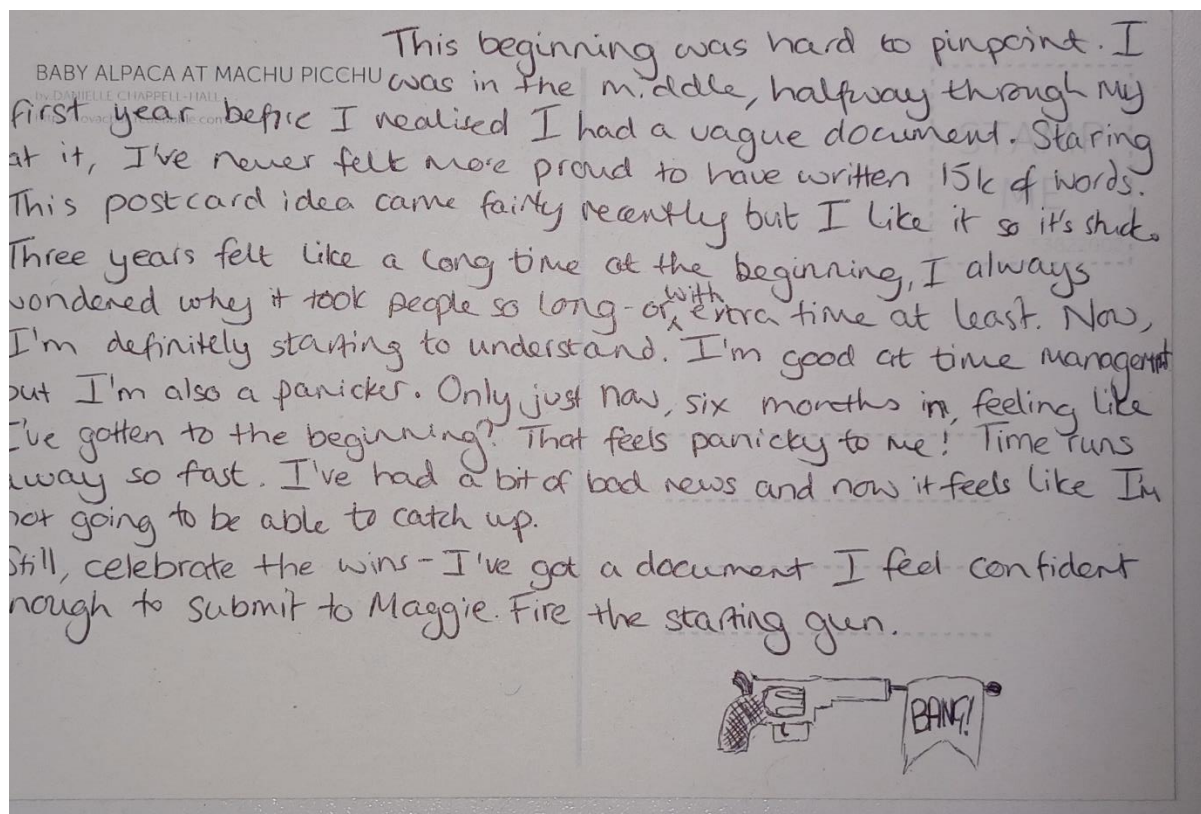 This beginning was hard to pinpoint. I
BABY ALPACA AT MACHU PICCHU
was in the middle, halfway through my
by DANIELLE CHAPPELL-HALL
first year before I realised I had a vague document. Staring
at it, I've never felt more proud to have written 15k of words.
This postcard idea came fairly recently but I like it so it's stuck.
Three years felt like a long time at the beginning, I always
wondered why it took people so long - or with extra time at least. Now,
I'm definitely starting to understand. I'm good at time management
but I'm also a panicker. Only just now, six months in, feeling like
I've gotten to the beginning? That feels panicky to me! Time runs
away so fast. I've had a bit of bad news and now it feels like I'm
not going to be able to catch up.
Still, celebrate the wins - I've got a document I feel confident
nough to submit to Maggie. Fire the starting gun.
BANG!